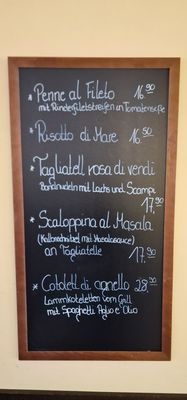 * Penne al Fileto 16.90
mit Rinderfiletstreifen an Tomatensoße
* Risotto di Mare 16.90
* Tagliatell rosa di verdi
Bandnudeln mit Lachs und Scampi
17.90
* Scaloppina al Masala
(Kalbsschnitzel mit Marsalasauce)
an Tagliatelle 17.90
* Cotolett di agnello 28,90
Lammkoteletten vom Grill
mit Spaghetti Aglio e Olio